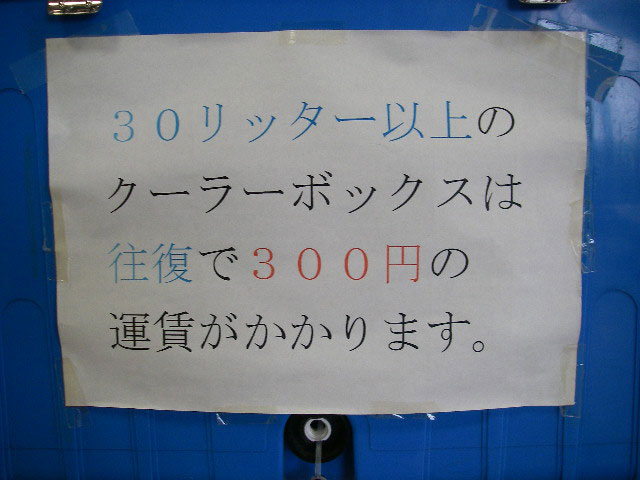 ３０リッター以上の
クーラーボックスは
往復で３００円の
運賃がかかります。